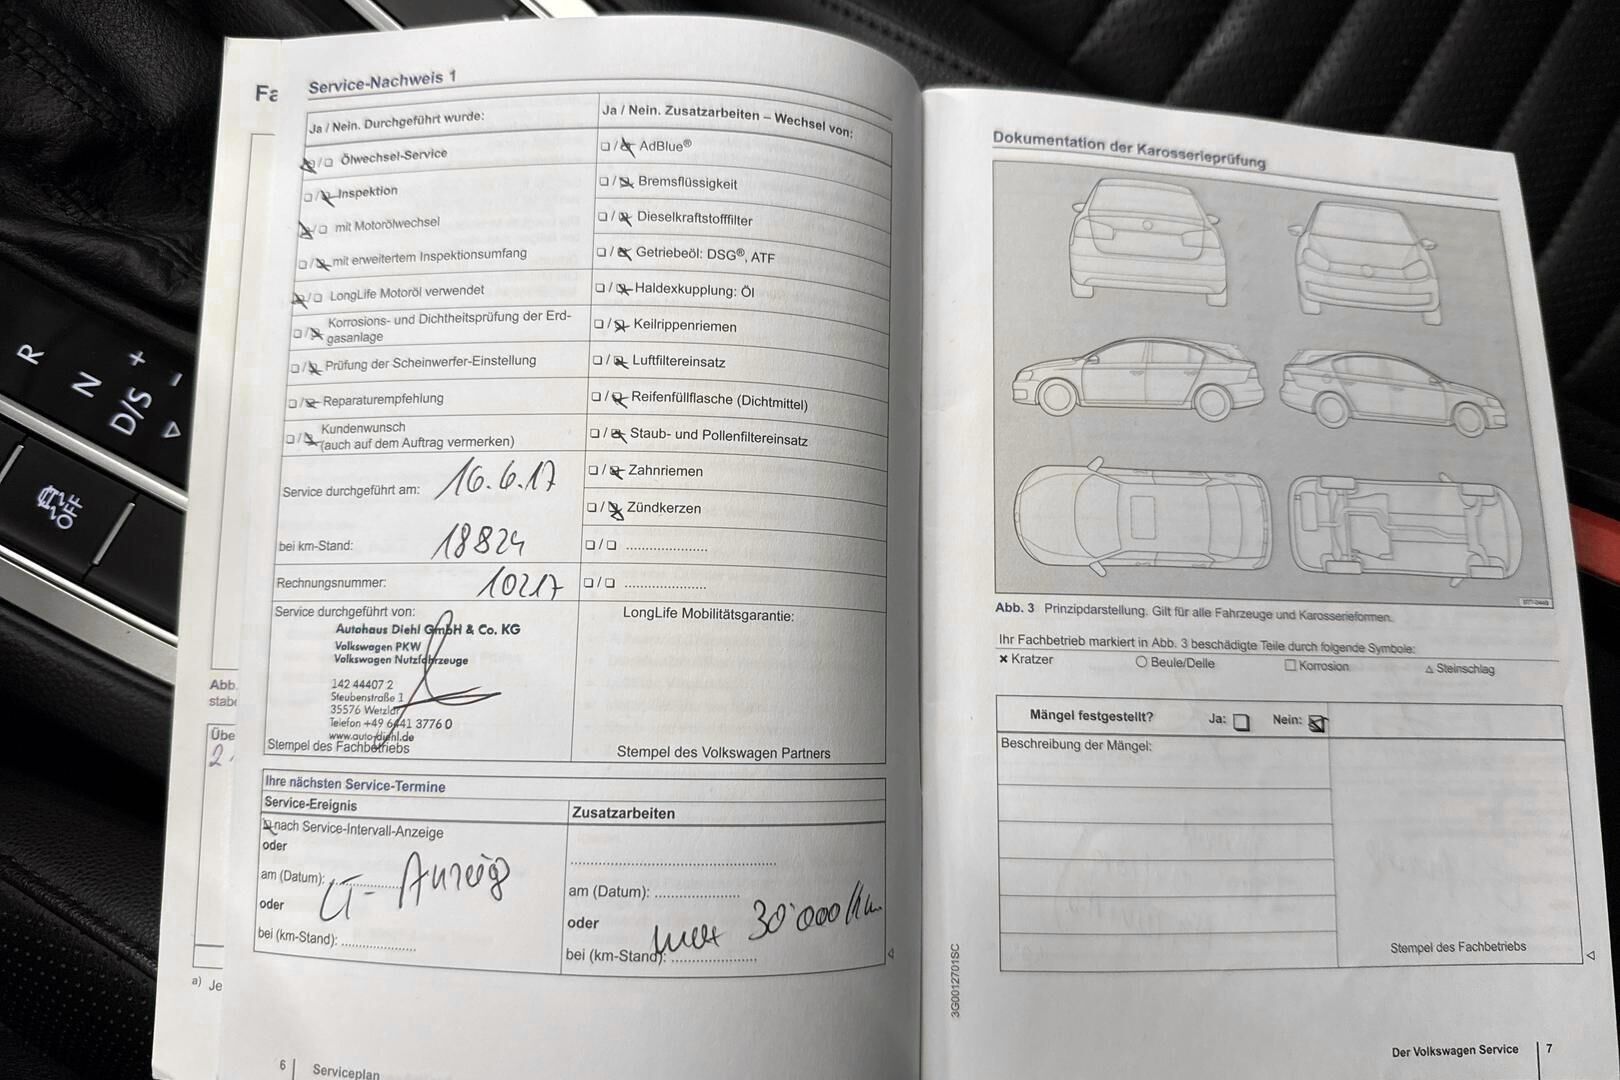 R
N
D/S
+
-
OFF
Fa
Abb.
stab
Übe
2.
a) Je
Service-Nachweis 1
Ja / Nein. Durchgeführt wurde:
Ölwechsel-Service
Inspektion
mit Motorölwechsel
mit erweitertem Inspektionsumfang
LongLife Motoröl verwendet
Korrosions- und Dichtheitsprüfung der Erd-
gasanlage
Prüfung der Scheinwerfer-Einstellung
Reparaturempfehlung
Kundenwunsch
(auch auf dem Auftrag vermerken)
Service durchgeführt am: 16.6.17
bei km-Stand: 18824
Rechnungsnummer: 10217
Service durchgeführt von:
Autohaus Diehl GmbH & Co. KG
Volkswagen PKW
Volkswagen Nutzfahrzeuge
142 44407 2
Steubenstraße 1
35576 Wetzlar
Telefon +49 6441 3776 0
www.auto-diehl.de
Stempel des Fachbetriebs
Ja / Nein. Zusatzarbeiten – Wechsel von:
AdBlue®
Bremsflüssigkeit
Dieselkraftstofffilter
Getriebeöl: DSG®, ATF
Haldexkupplung: Öl
Keilrippenriemen
Luftfiltereinsatz
Reifenfüllflasche (Dichtmittel)
Staub- und Pollenfiltereinsatz
Zahnriemen
Zündkerzen
LongLife Mobilitätsgarantie:
Stempel des Volkswagen Partners
Ihre nächsten Service-Termine
Service-Ereignis
nach Service-Intervall-Anzeige
oder
am (Datum):
oder
bei (km-Stand):
Zusatzarbeiten
am (Datum):
oder
30'000 km
bei (km-Stand):
6 | Serviceplan
Dokumentation der Karosserieprüfung
Abb. 3 Prinzipdarstellung. Gilt für alle Fahrzeuge und Karosserieformen.
Ihr Fachbetrieb markiert in Abb. 3 beschädigte Teile durch folgende Symbole:
× Kratzer ○ Beule/Delle □ Korrosion △ Steinschlag
Mängel festgestellt? Ja: Nein:
Beschreibung der Mängel:
Stempel des Fachbetriebs
3G0012701SC
Der Volkswagen Service | 7